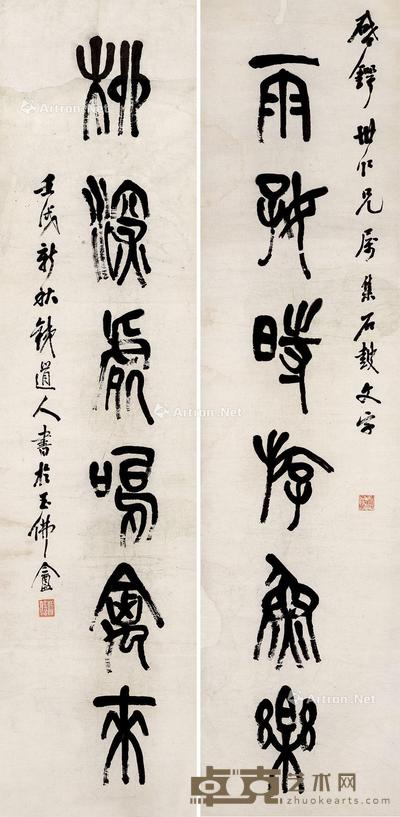 啟鐸世仁兄屬集石鼓文字
雨時斿魚樂
柳深處鳴禽來
壬戌新秋鐵道人書於玉佛龕
Artron.Net
Artron.Net
Artron.Net
Artron.Net
Artron.Net
卓克艺术网
zhuokearts.com